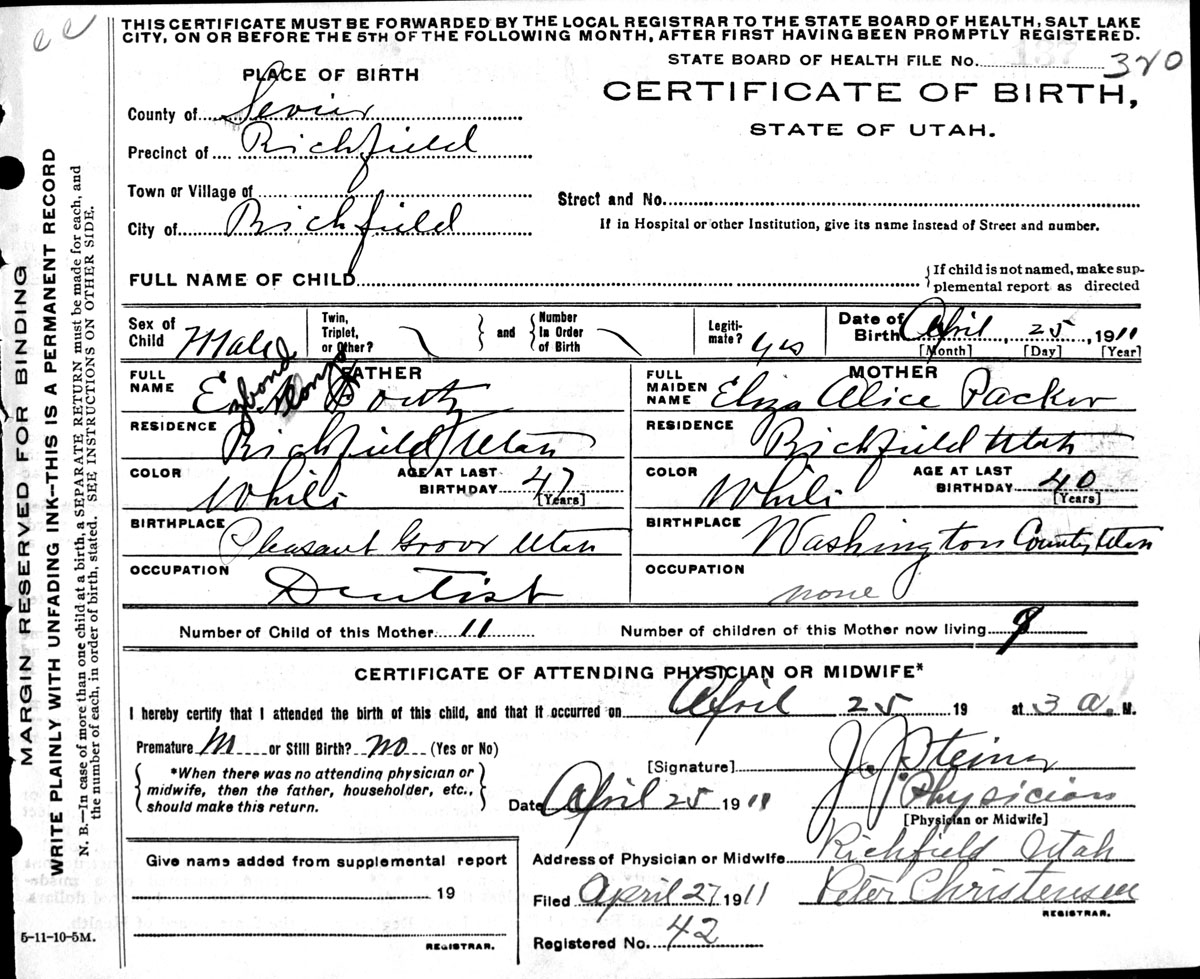 THIS CERTIFICATE MUST BE FORWARDED BY THE LOCAL REGISTRAR TO THE STATE BOARD OF HEALTH, SALT LAKE
CITY, ON OR BEFORE THE 5TH OF THE FOLLOWING MONTH, AFTER FIRST HAVING BEEN PROMPTLY REGISTERED.
STATE BOARD OF HEALTH FILE No. 137 320
PLACE OF BIRTH
CERTIFICATE OF BIRTH,
STATE OF UTAH.
County of Sevier
Precinct of Richfield
Town or Village of
Street and No.
City of Richfield
If in Hospital or other Institution, give its name instead of Street and number.
FULL NAME OF CHILD
{If child is not named, make sup-
plemental report as directed
Sex of Child Male
Twin, Triplet, or Other? } and { Number In Order of Birth
Legiti-mate? yes
Date of Birth April 25, 1911
[Month] [Day] [Year]
FATHER
FULL NAME
MOTHER
FULL MAIDEN NAME Eliza Alice Packer
RESIDENCE Richfield Utah
RESIDENCE Richfield Utah
COLOR White AGE AT LAST BIRTHDAY 47 [Years]
COLOR White AGE AT LAST BIRTHDAY 40 [Years]
BIRTHPLACE Pleasant Grove Utah
BIRTHPLACE Washington County Utah
OCCUPATION Dentist
OCCUPATION none
Number of Child of this Mother 11
Number of children of this Mother now living
CERTIFICATE OF ATTENDING PHYSICIAN OR MIDWIFE*
I hereby certify that I attended the birth of this child, and that it occurred on April 25 19 at 3 a. M.
Premature or Still Birth? no (Yes or No)
{ *When there was no attending physician or
midwife, then the father, householder, etc.,
should make this return. }
[Signature] J. J. Steiner
Date April 25 1911
Physician
[Physician or Midwife]
Address of Physician or Midwife Richfield Utah
Filed April 27 1911 Peter Christensen
REGISTRAR.
Registered No. 42
Give name added from supplemental report
19
REGISTRAR.
5-11-10-5M.
MARGIN RESERVED FOR BINDING
WRITE PLAINLY WITH UNFADING INK--THIS IS A PERMANENT RECORD
N. B.--In case of more than one child at a birth, a SEPARATE RETURN must be made for each, and
the number of each, in order of birth, stated. SEE INSTRUCTIONS ON OTHER SIDE.